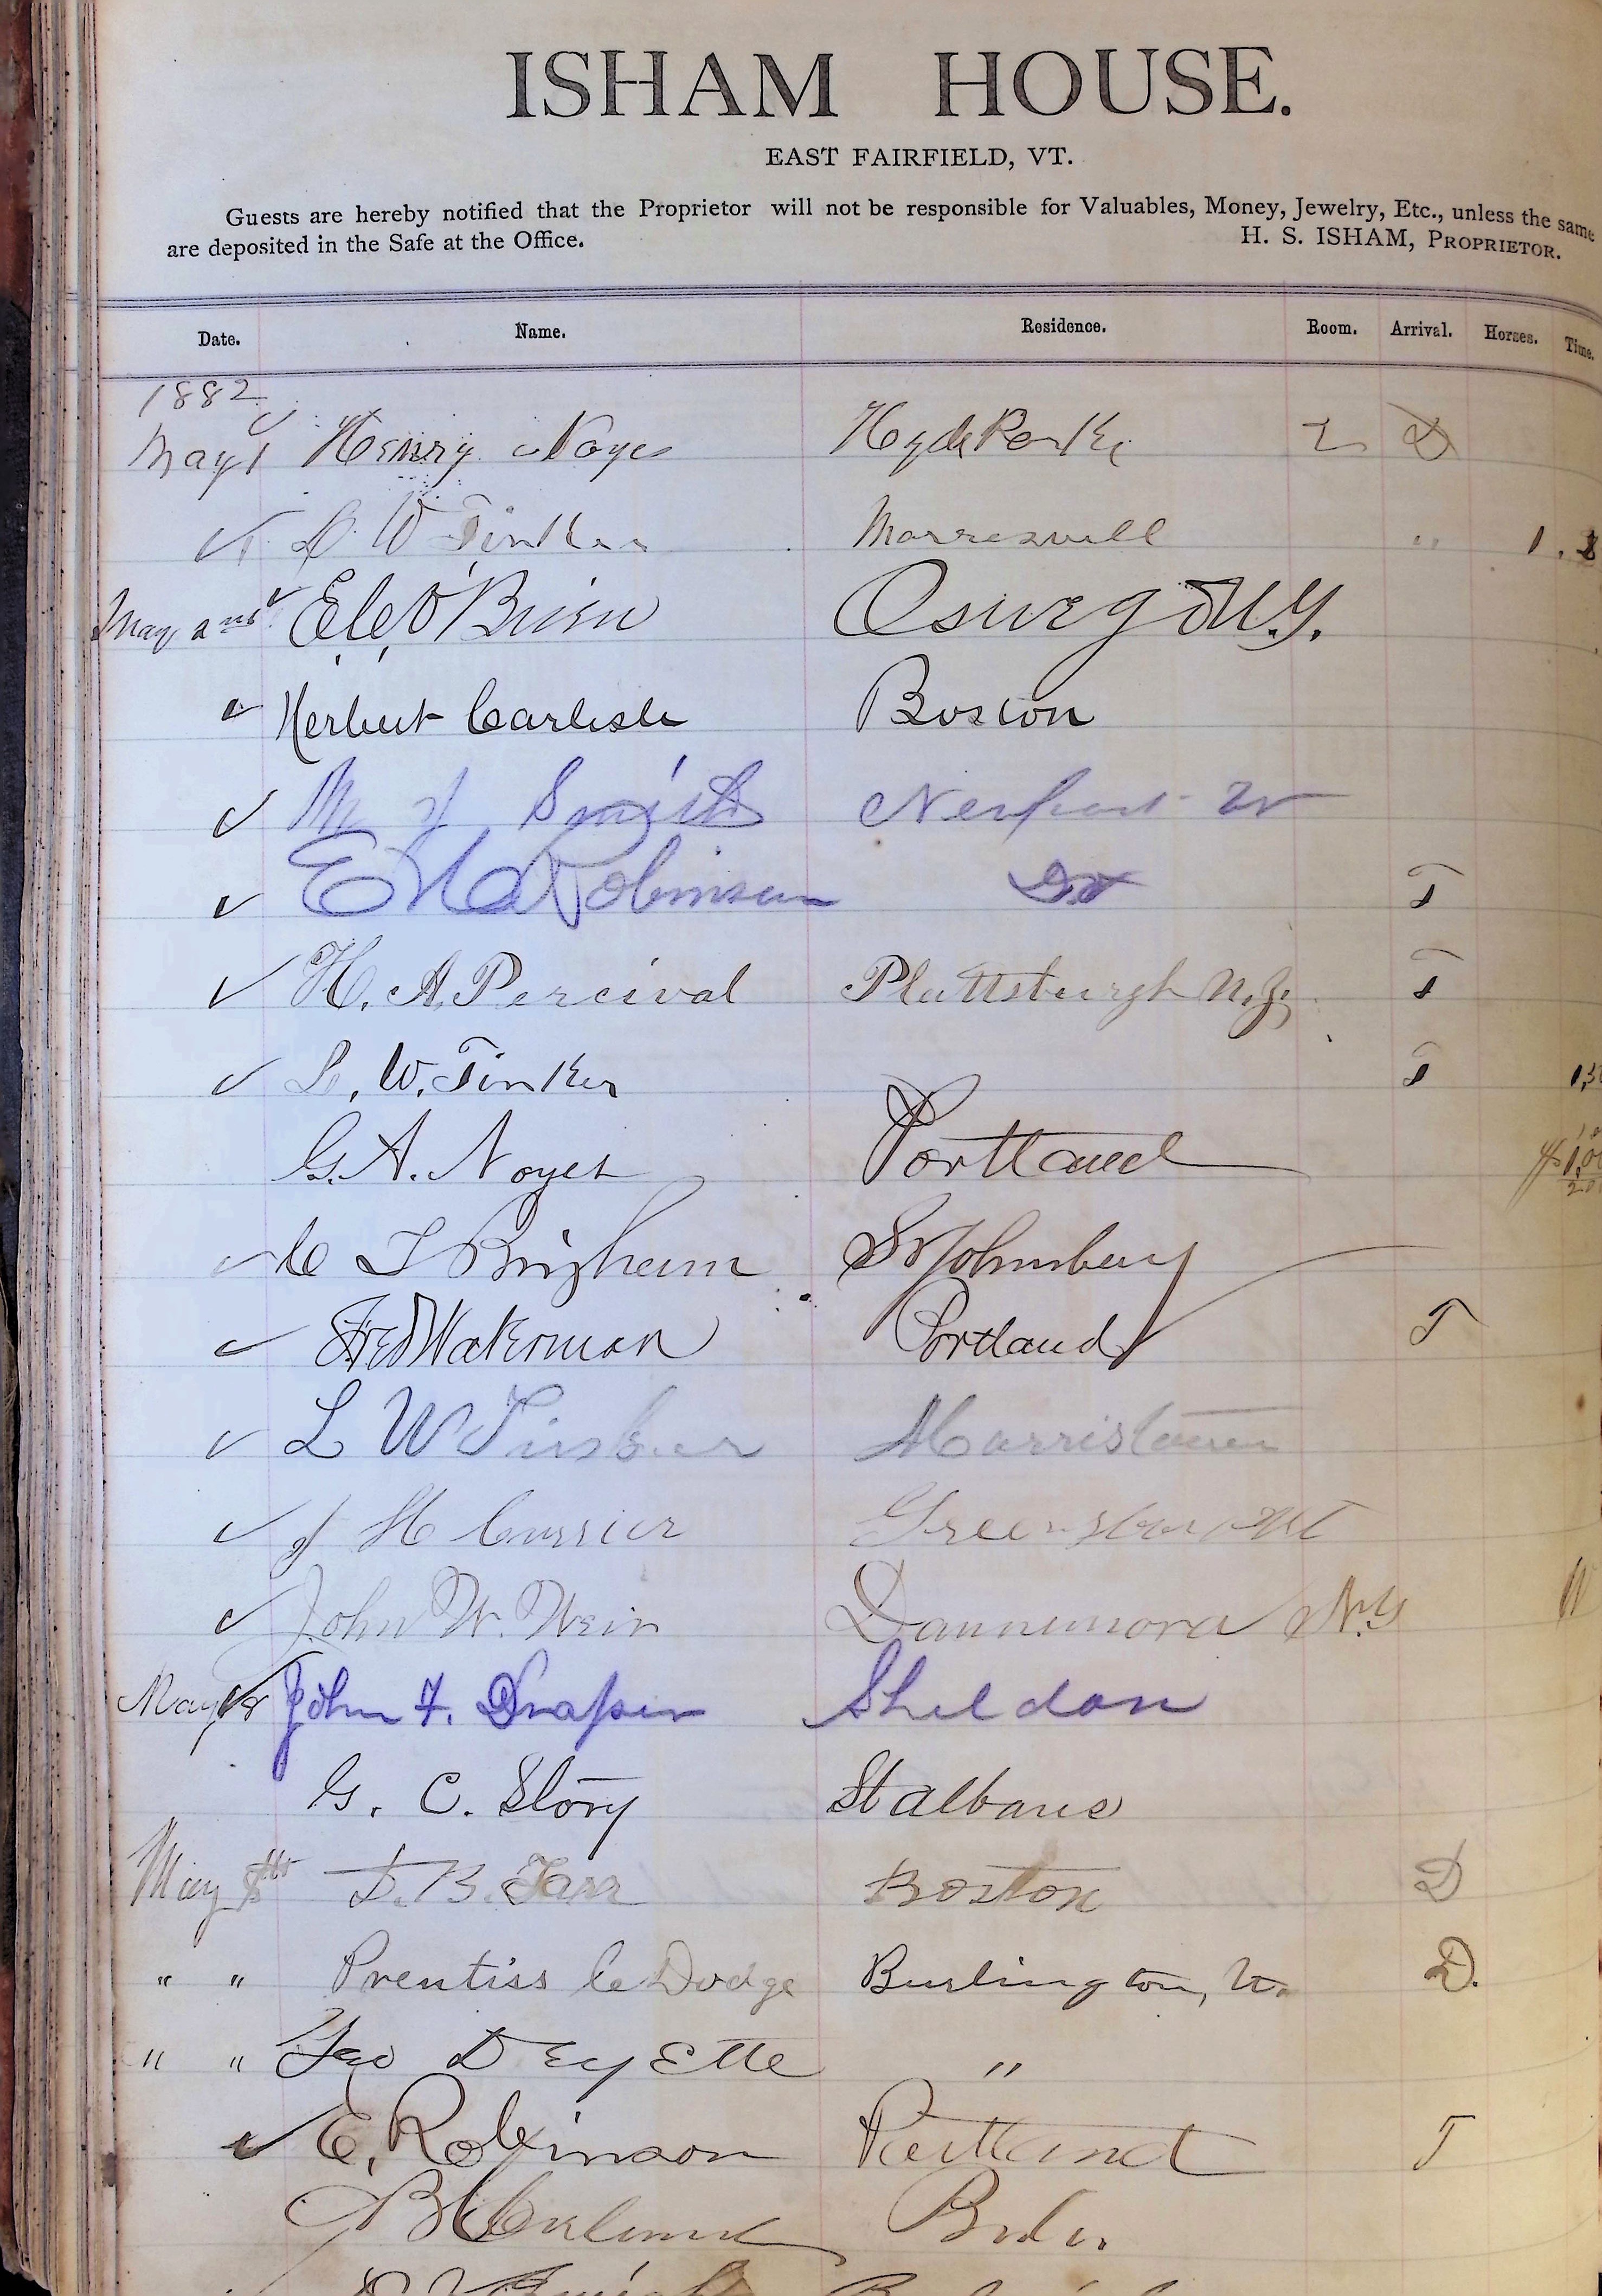 ISHAM HOUSE.
EAST FAIRFIELD, VT.
Guests are hereby notified that the Proprietor will not be responsible for Valuables, Money, Jewelry, Etc., unless the same
are deposited in the Safe at the Office. H. S. ISHAM, PROPRIETOR.
Date. Name. Residence. Room. Arrival. Horses. Time.
1882
May 1 Henry Noyes Hyde Park D
L. W. Tinker "
May 2nd O'Brien Oswego N.Y.
Herbert Carlisle Boston
M J Smith Newport Vt
Robinson Do T
H. A. Percival Plattsburgh N.Y. T
L. W. Tinker T
G. A. Noyes Portland
C Brigham St Johnsbury
Fred Waterman Portland T
L W Morristown
J H Currier
John W. Weir Dannemora N.Y
May John F. Draper Sheldon
G. C. Story St albans
May 8th Boston D
" " Prentiss C Dodge Burlington, Vt. D.
" " Geo Deyette "
E. Robinson Portland T